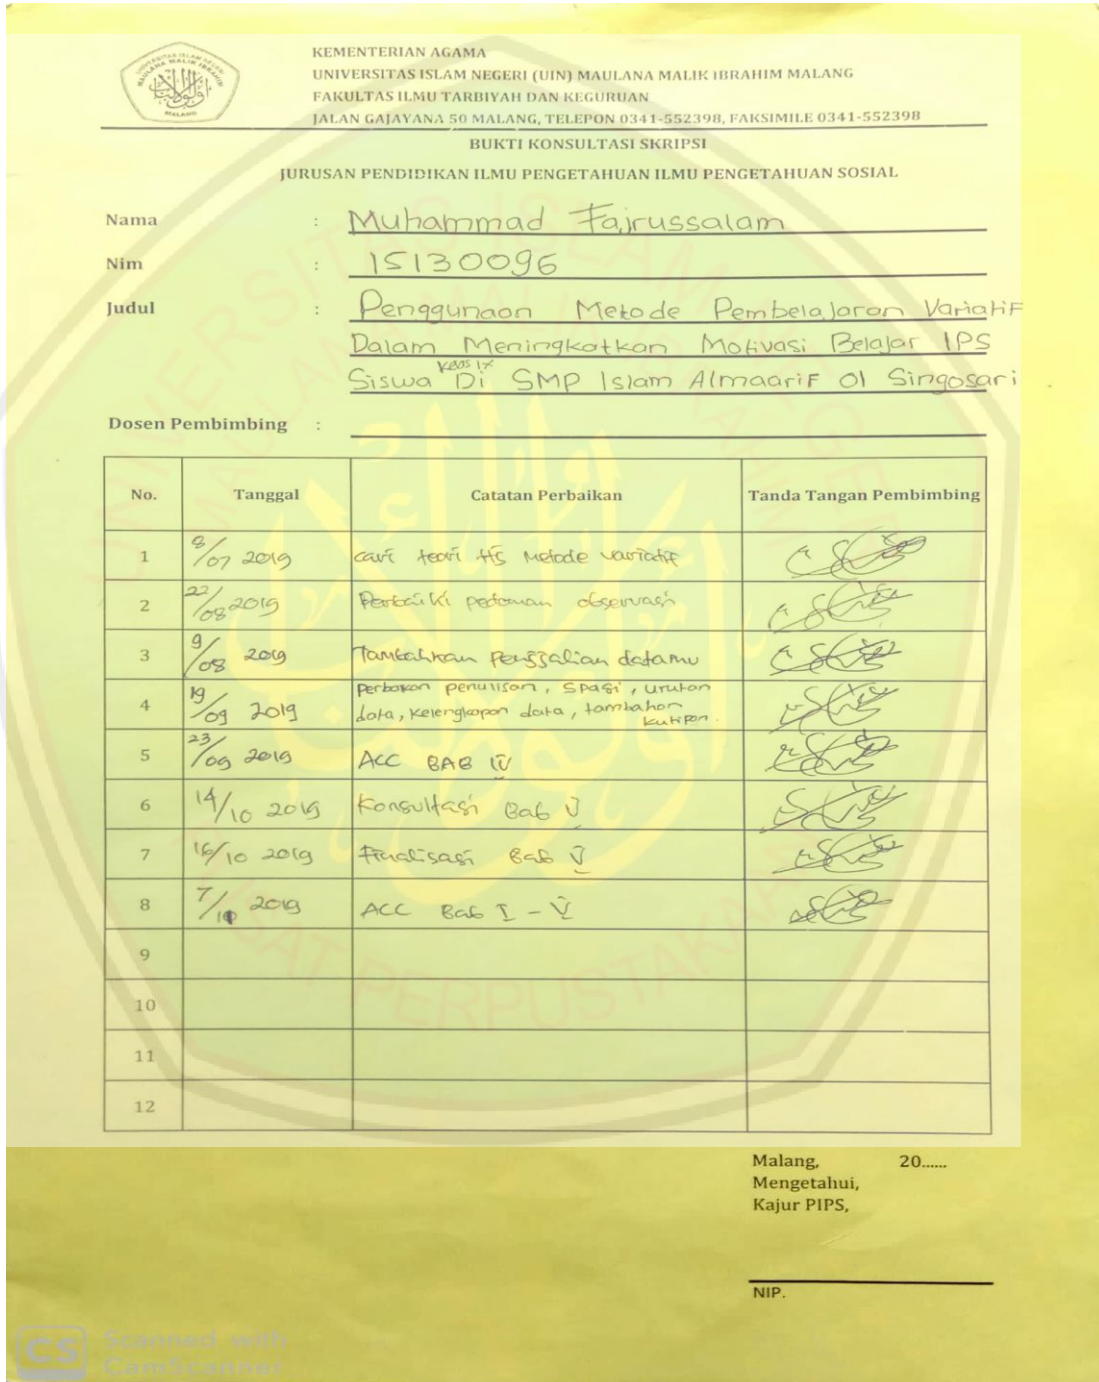 KEMENTERIAN AGAMA
UNIVERSITAS ISLAM NEGERI (UIN) MAULANA MALIK IBRAHIM MALANG
FAKULTAS ILMU TARBIYAH DAN KEGURUAN
JALAN GAJAYANA 50 MALANG, TELEPON 0341-552398, FAKSIMILE 0341-552398
BUKTI KONSULTASI SKRIPSI
JURUSAN PENDIDIKAN ILMU PENGETAHUAN ILMU PENGETAHUAN SOSIAL
Nama : Muhammad Fajrussalam
Nim : 15130096
Judul : Penggunaan Metode Pembelajaran Variatif
Dalam Meningkatkan Motivasi Belajar IPS
Siswa Kelas IX Di SMP Islam Almaarif 01 Singosari
Dosen Pembimbing :
No. Tanggal Catatan Perbaikan Tanda Tangan Pembimbing
1 8/07 2019 cari teori ttg Metode variatif
2 22/08 2019 Perbaiki pedoman observasi
3 9/08 2019 Tambahkan penggalian datamu
4 19/09 2019 perbaikan penulisan, spasi, urutan
data, kelengkapan data, tambahan
kutipan.
5 23/09 2019 ACC BAB IV
6 14/10 2019 Konsultasi Bab V
7 16/10 2019 Finalisasi Bab V
8 7/11 2019 ACC Bab I - V
9
10
11
12
Malang, 20......
Mengetahui,
Kajur PIPS,
NIP.
CS Scanned with
CamScanner